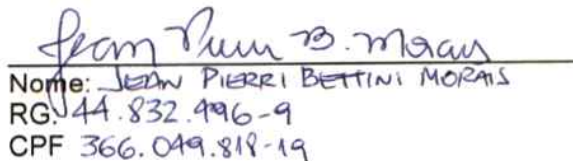 Jean Pierri B. Morais
Nome: JEAN PIERRI BETTINI MORAIS
RG. 44.832.496-9
CPF 366.049.818-19